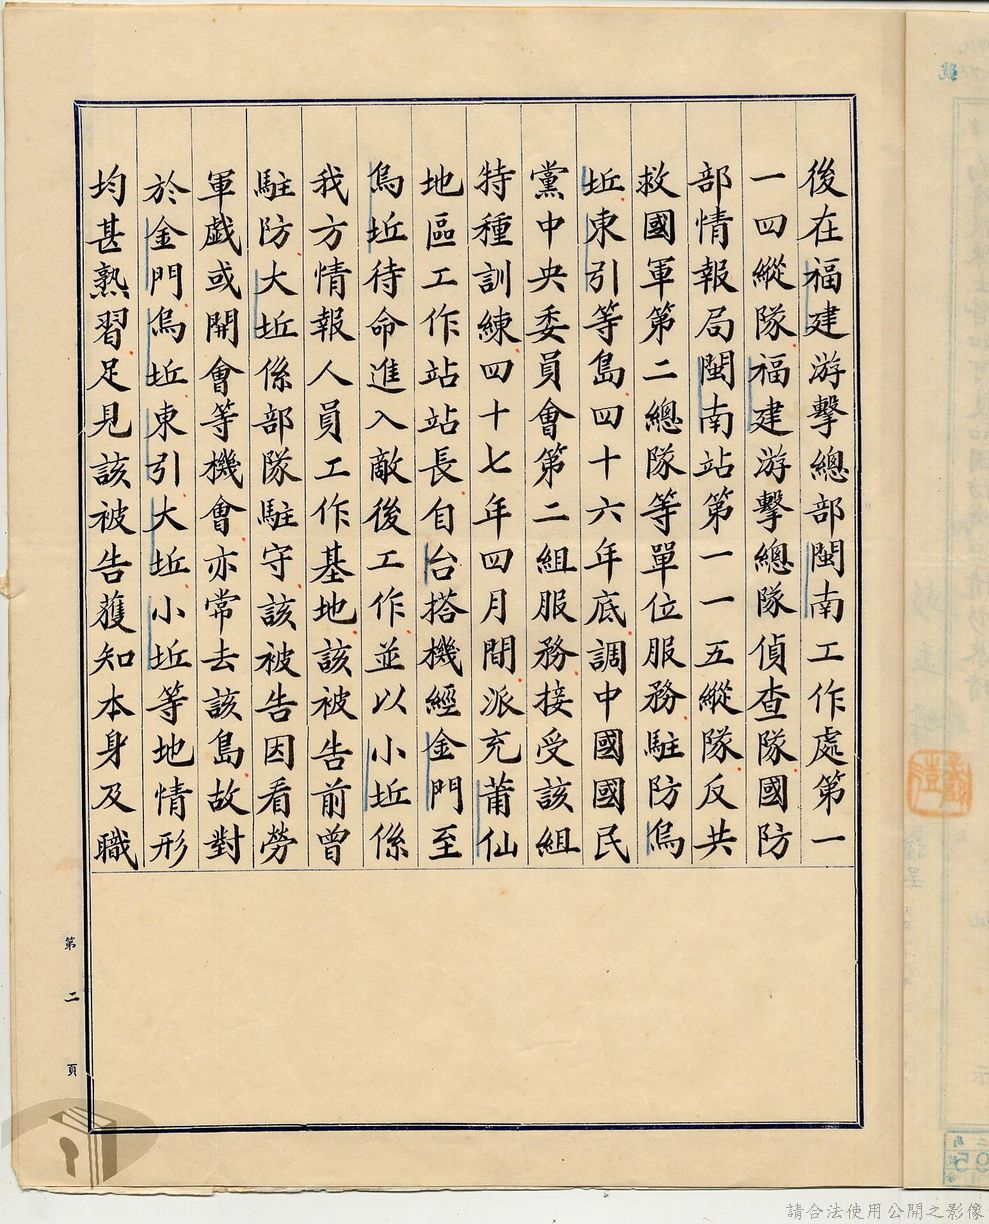 後在福建游擊總部閩南工作處第一
一四縱隊福建游擊總隊偵查隊國防
部情報局閩南站第一一五縱隊反共
救國軍第二總隊等單位服務駐防烏
坵東引等島四十六年底調中國國民
黨中央委員會第二組服務接受該組
特種訓練四十七年四月間派充莆仙
地區工作站站長自台搭機經金門至
烏坵待命進入敵後工作並以小坵係
我方情報人員工作基地該被告前曾
駐防大坵係部隊駐守該被告因看勞
軍戲或開會等機會亦常去該島故對
於金門烏坵東引大坵小坵等地情形
均甚熟習足見該被告蒦知本身及職
第二頁
請合法使用公開之影像